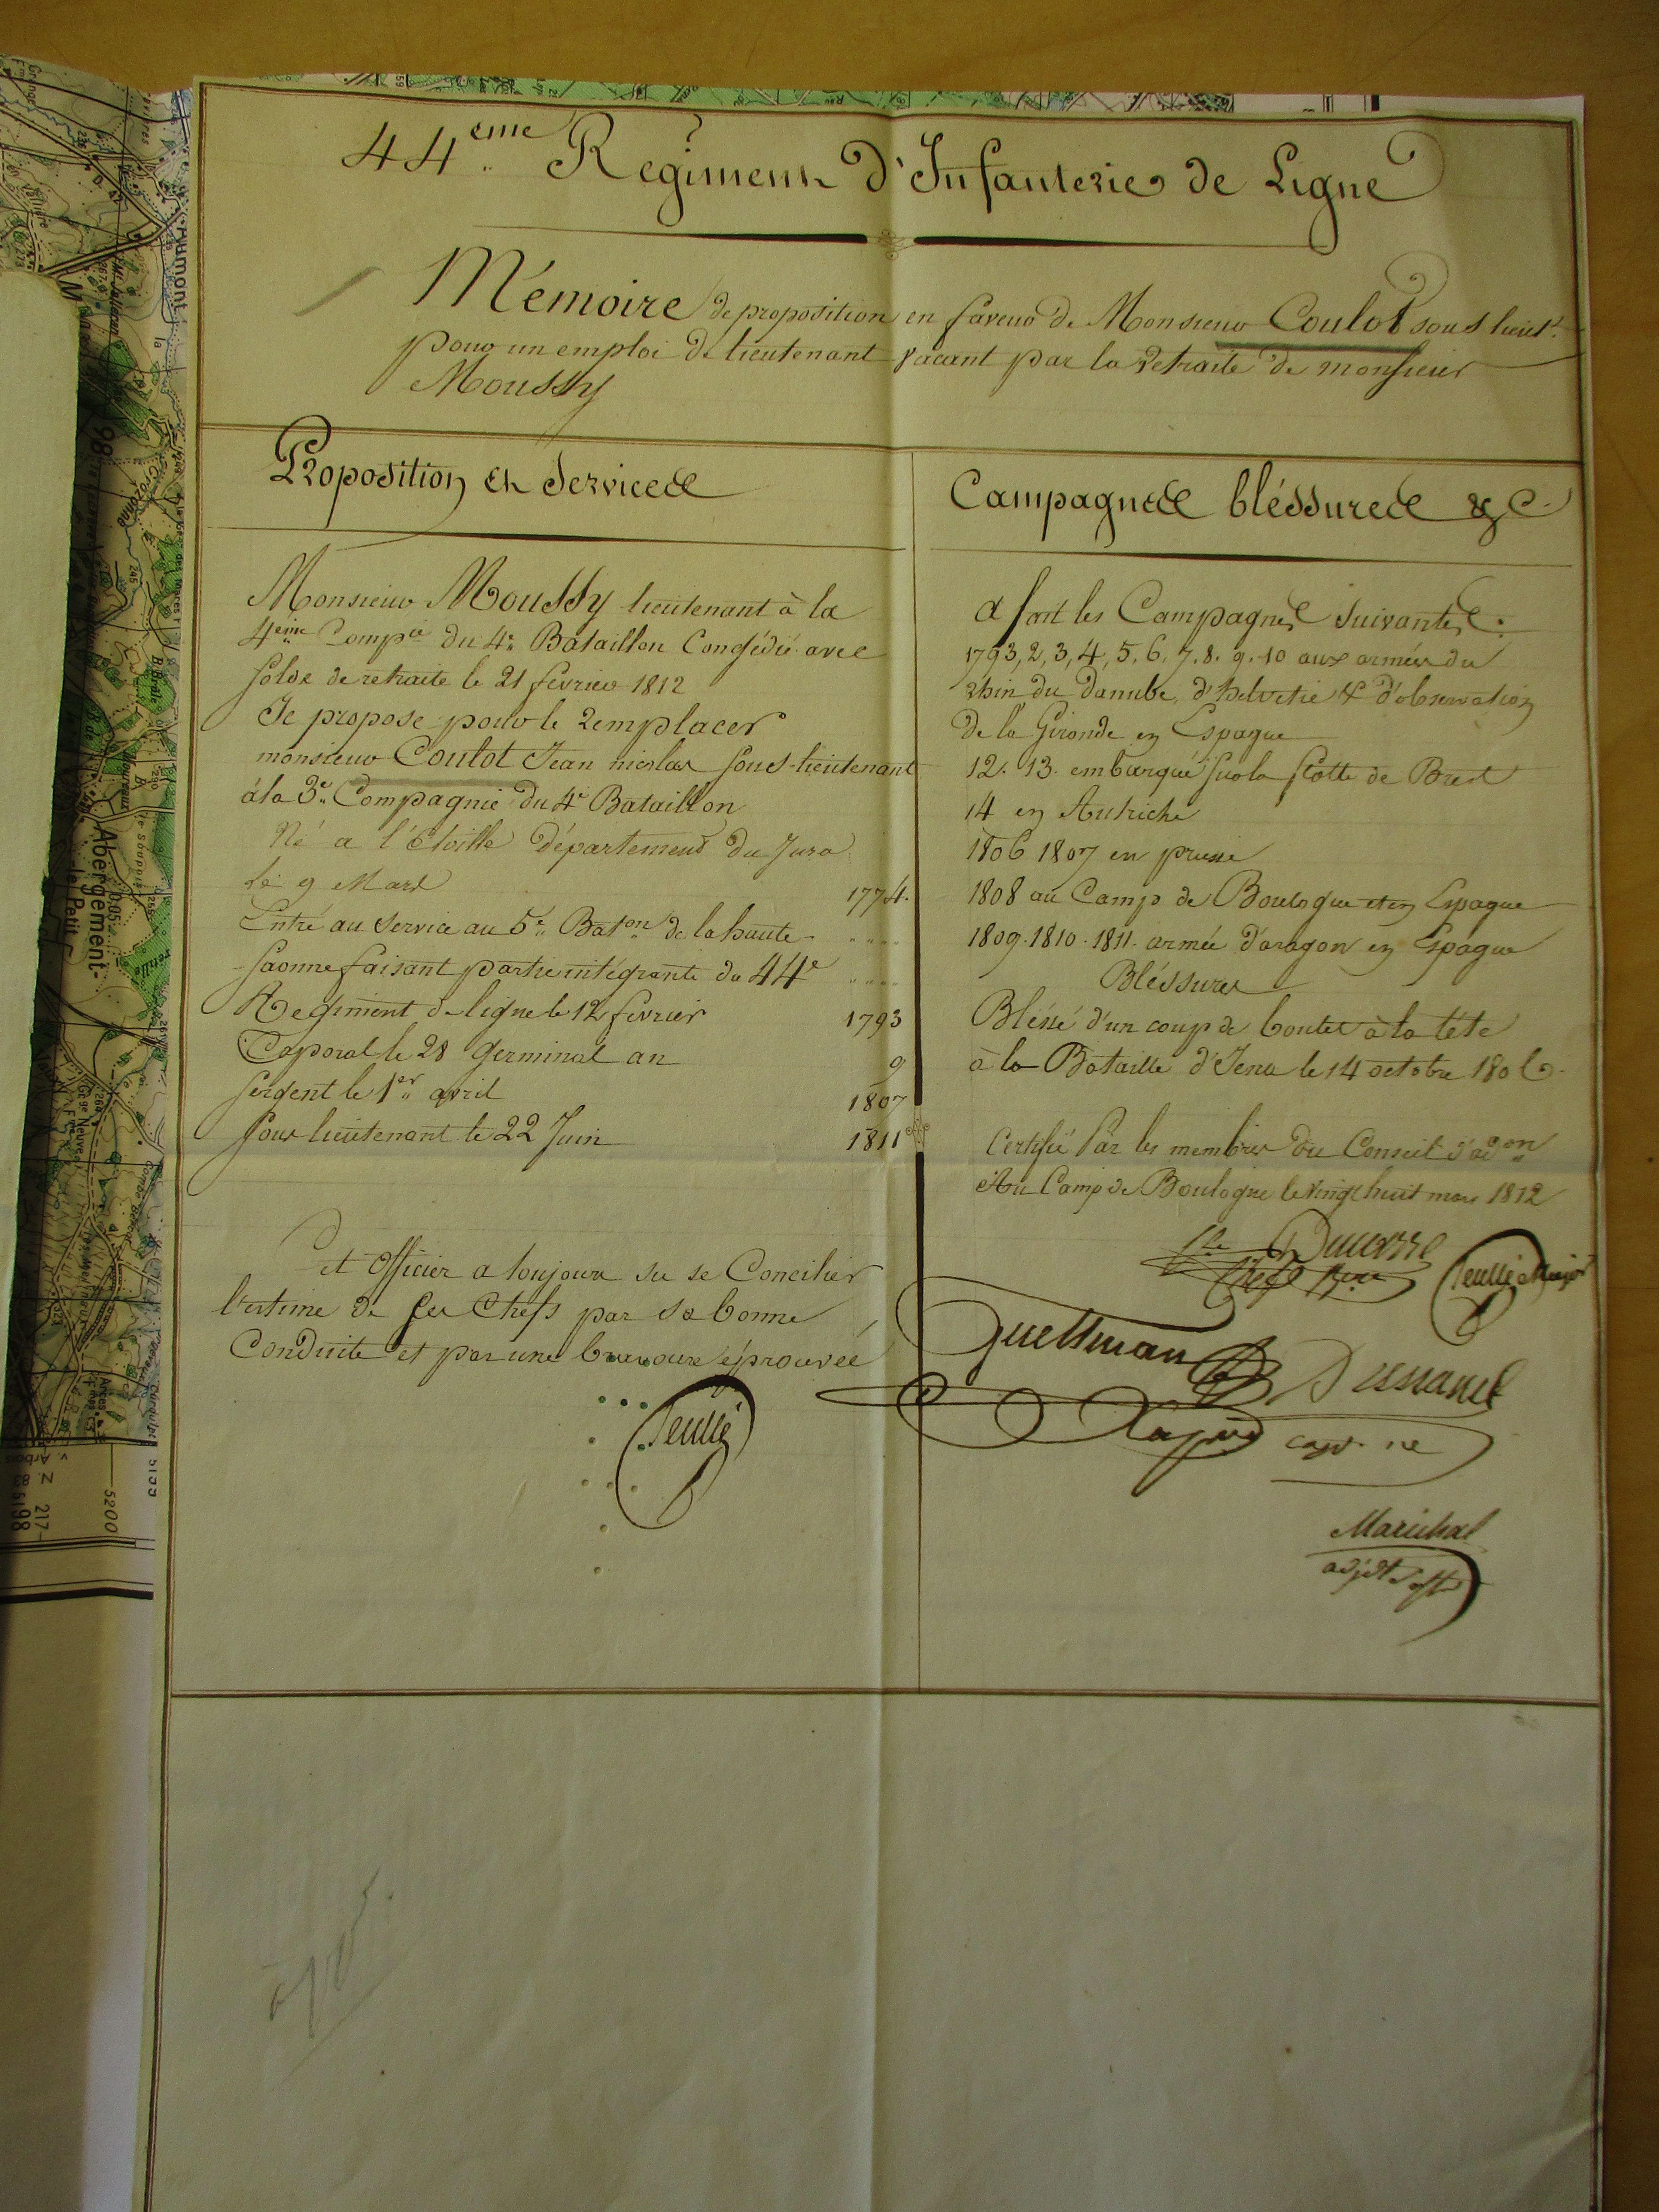 44ème Régiment d'Infanterie de Ligne
Mémoire de proposition en faveur de Monsieur Coulot sous lieut.
pour un emploi de lieutenant vacant par la retraite de monsieur
Moussy
Proposition et Services
Monsieur Moussy lieutenant à la
4ème Compie du 4e Bataillon Congédié avec
solde de retraite le 21 février 1812
Je propose pour le remplacer
monsieur Coulot Jean nicolas sous-lieutenant
à la 3e Compagnie du 4e Bataillon
Né a l'étoille Département du Jura
le 9 Mars 1774.
Entré au service au 5e Baton de la haute
saonne faisant partie intégrante du 44e
Regiment de ligne le 12 fevrier 1793
Caporal le 28 germinal an 9
Sergent le 1er avril 1807
Sous lieutenant le 22 Juin 1811
Cet officier a toujours su se Concilier
l'estime de ses Chefs par sa bonne
Conduite et par une bravoure éprouvée
Teullé
Campagnes bléssures &c.
a fait les Campagnes suivantes:
1793, 2, 3, 4, 5. 6. 7. 8. 9. 10 aux armées du
rhin du Danube, d'helvetie & d'observation
de la Gironde en Espagne
12. 13. embarqué sur la flotte de Brest
14 en Autriche
1806 1807 en prusse
1808 au Camp de Boulogne et en Espagne
1809. 1810. 1811. armée d'aragon en Espagne
Bléssures
Bléssé d'un coup de boulet à la tête
à la Bataille d'Jena le 14 octobre 1806.
Certifié Par les membres du Conseil d'adon
Au Camp de Boulogne le vingt huit mars 1812
Teullé Major
Guettman
capne
Maréchal
adjdt s. off
Aumont
Abergement-
le Petit
5200
N. 83
217
5198